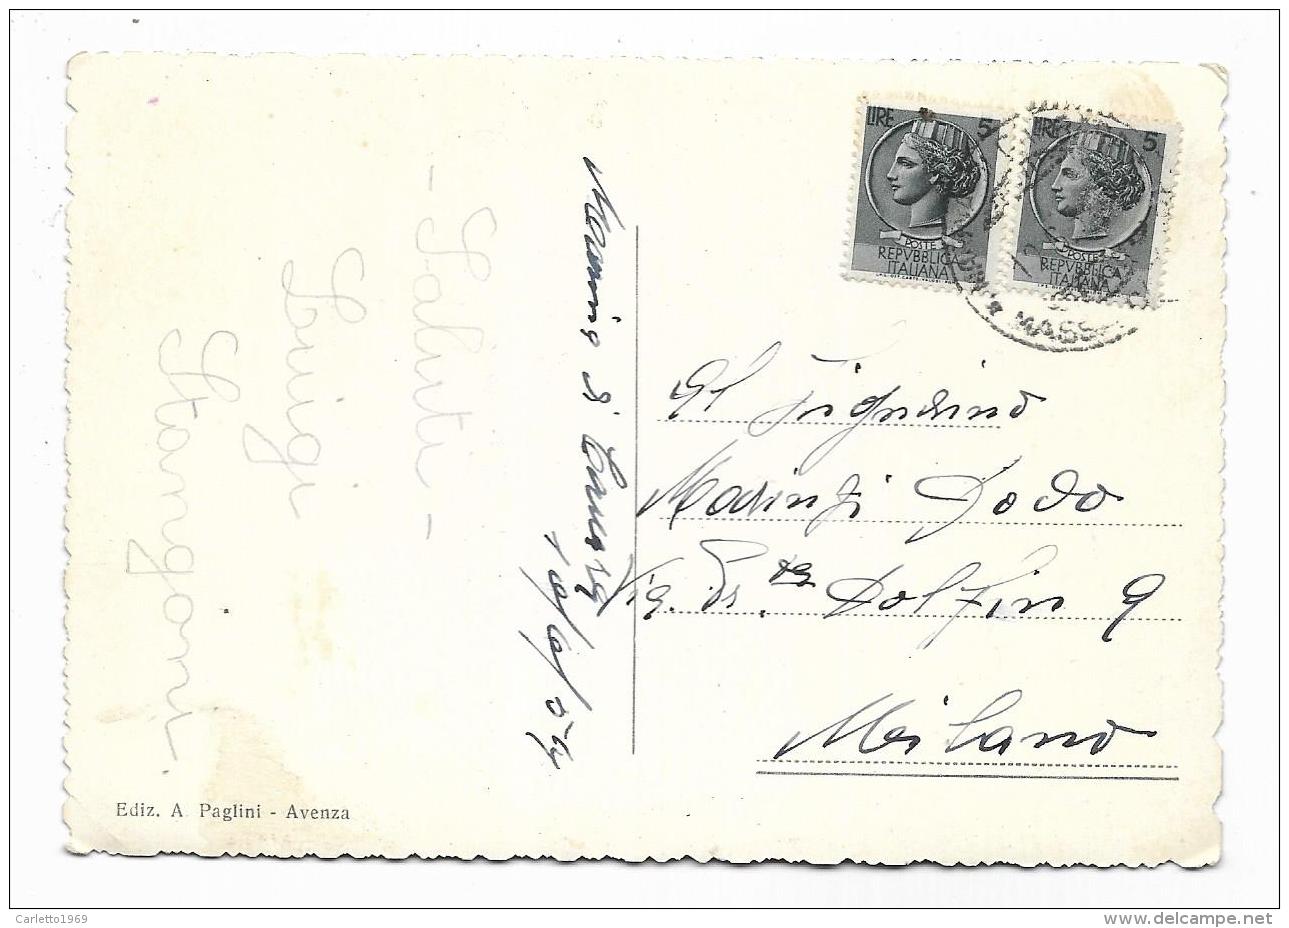 - Saluti -
Luigi
Stangoni
Marina di Carrara
LIRE 5
POSTE
REPVBBLICA
ITALIANA
LIRE 5
POSTE
REPVBBLICA
ITALIANA
MASSA
Al Signorino
Marinzi Dodo
Via Dolfin 9
Milano
Ediz. A. Paglini - Avenza
Carletto1969
delcampe.net